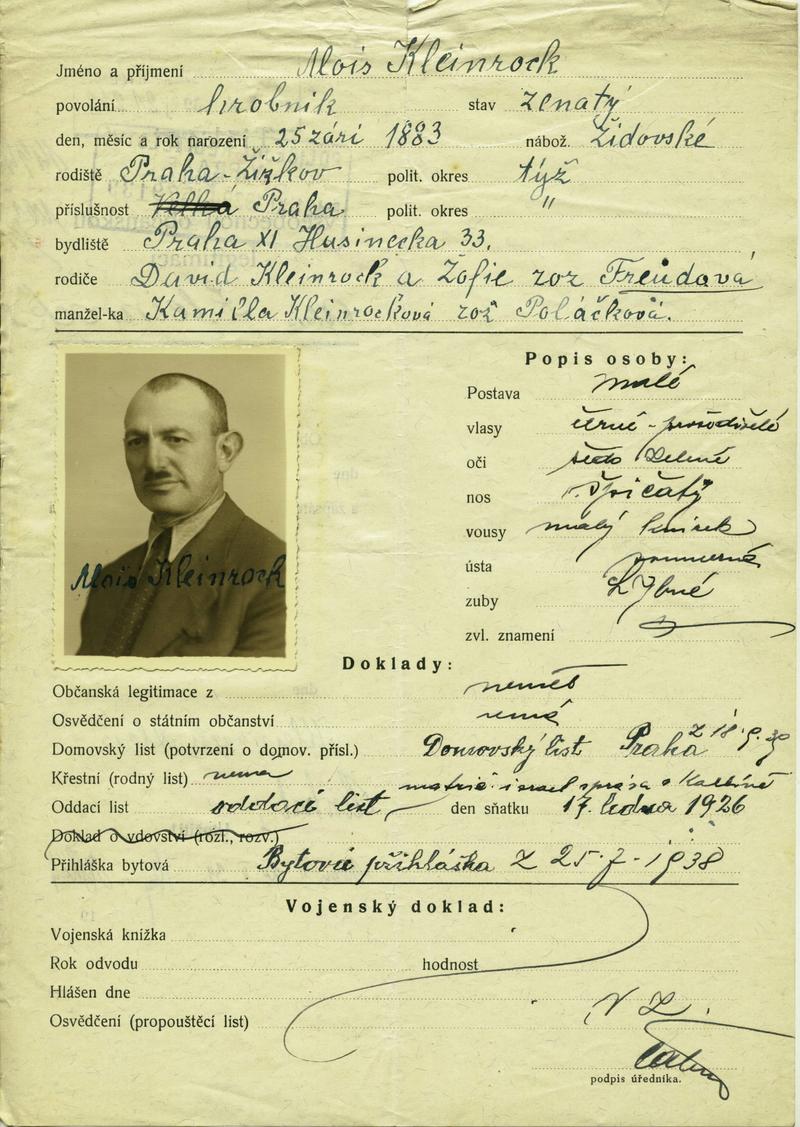 Jméno a příjmení Alois Kleinrock
povolání hrobnik stav ženatý
den, měsíc a rok narození 25 zári 1883 nábož. Židovské
rodiště Praha-Žižkov polit. okres týž
příslušnost Velká Praha polit. okres "
bydliště Praha XI Husinecka 33.
rodiče David Kleinrock a Žofie roz Freudová
manžel-ka Kamilla Kleinrocková rož Poláčková.
Popis osoby:
Postava malé
vlasy černé - prošedivělé
oči šedo zelené
nos špičatý
vousy malý knírek
ústa souměrná
zuby chybné
zvl. znamení
Alois Kleinrock
Doklady:
Občanská legitimace z nemá
Osvědčení o státním občanství nemá
Domovský list (potvrzení o domov. přísl.) Domovský list Praha z 18.9.
Křestní (rodný list) nemá
Oddací list oddací list den sňatku 17. ledna 1926
Doklad o vdovství (rozl., rozv.)
Přihláška bytová Bytová přihláška z 25-7-1938
Vojenský doklad:
Vojenská knížka
Rok odvodu hodnost
Hlášen dne
Osvědčení (propouštěcí list)
podpis úředníka.